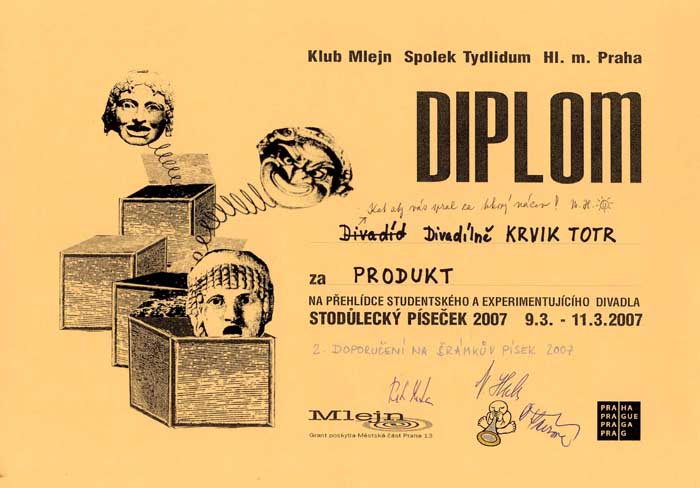 Klub Mlejn Spolek Tydlidum Hl. m. Praha
DIPLOM
Kat aby vás spral za
Divadílně KRVIK TOTR
za PRODUKT
NA PŘEHLÍDCE STUDENTSKÉHO A EXPERIMENTUJÍCÍHO DIVADLA
STODŮLECKÝ PÍSEČEK 2007 9.3. - 11.3.2007
2. DOPORUČENÍ NA ŠRÁMKŮV PÍSEK 2007
Mlejn
Grant poskytla Městská část Praha 13
PRA HA
PRA GUE
PRA GA
PRA G